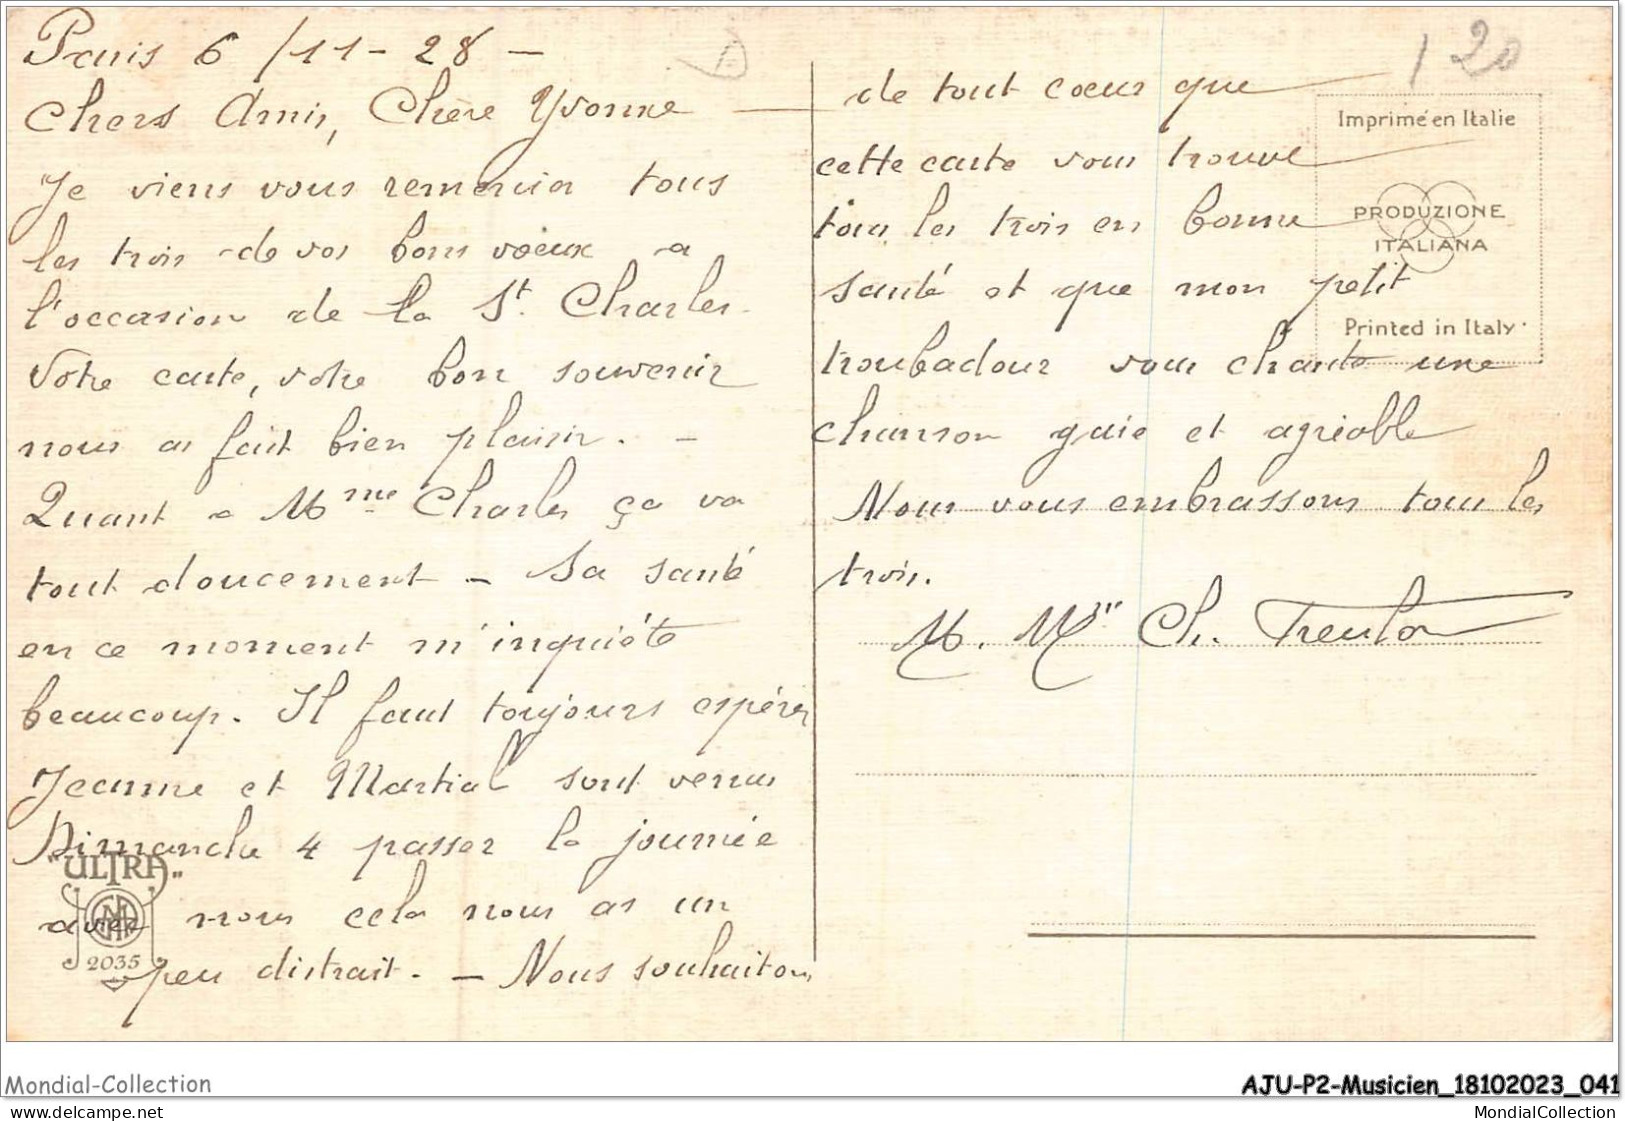 Paris 6/11-28 -
Chers Amis, Chère Yvonne
Je viens vous remercier tous
les trois de vos bons voeux a
l'occasion de la St. Charles.
Votre carte, votre bon souvenir
nous as fait bien plaisir. -
Quant a Mme Charles ça va
tout doucement - Sa santé
en ce moment m'inquiéte
beaucoup. Il faut toujours espérer
Jeanne et Martial sont venus
Dimanche 4 passer la journée
avec nous cela nous as un
peu distrait. - Nous souhaitons
"ULTRA"
2035
de tout coeur que
cette carte vous trouve
tous les trois en bonne
santé et que mon petit
troubadour vous chante une
chanson gaie et agréable
Nous vous embrassons tous les
trois.
M. Me Ch.
120
Imprimé en Italie
PRODUZIONE
ITALIANA
Printed in Italy
Mondial-Collection
AJU-P2-Musicien_18102023_041
www.delcampe.net
MondialCollection